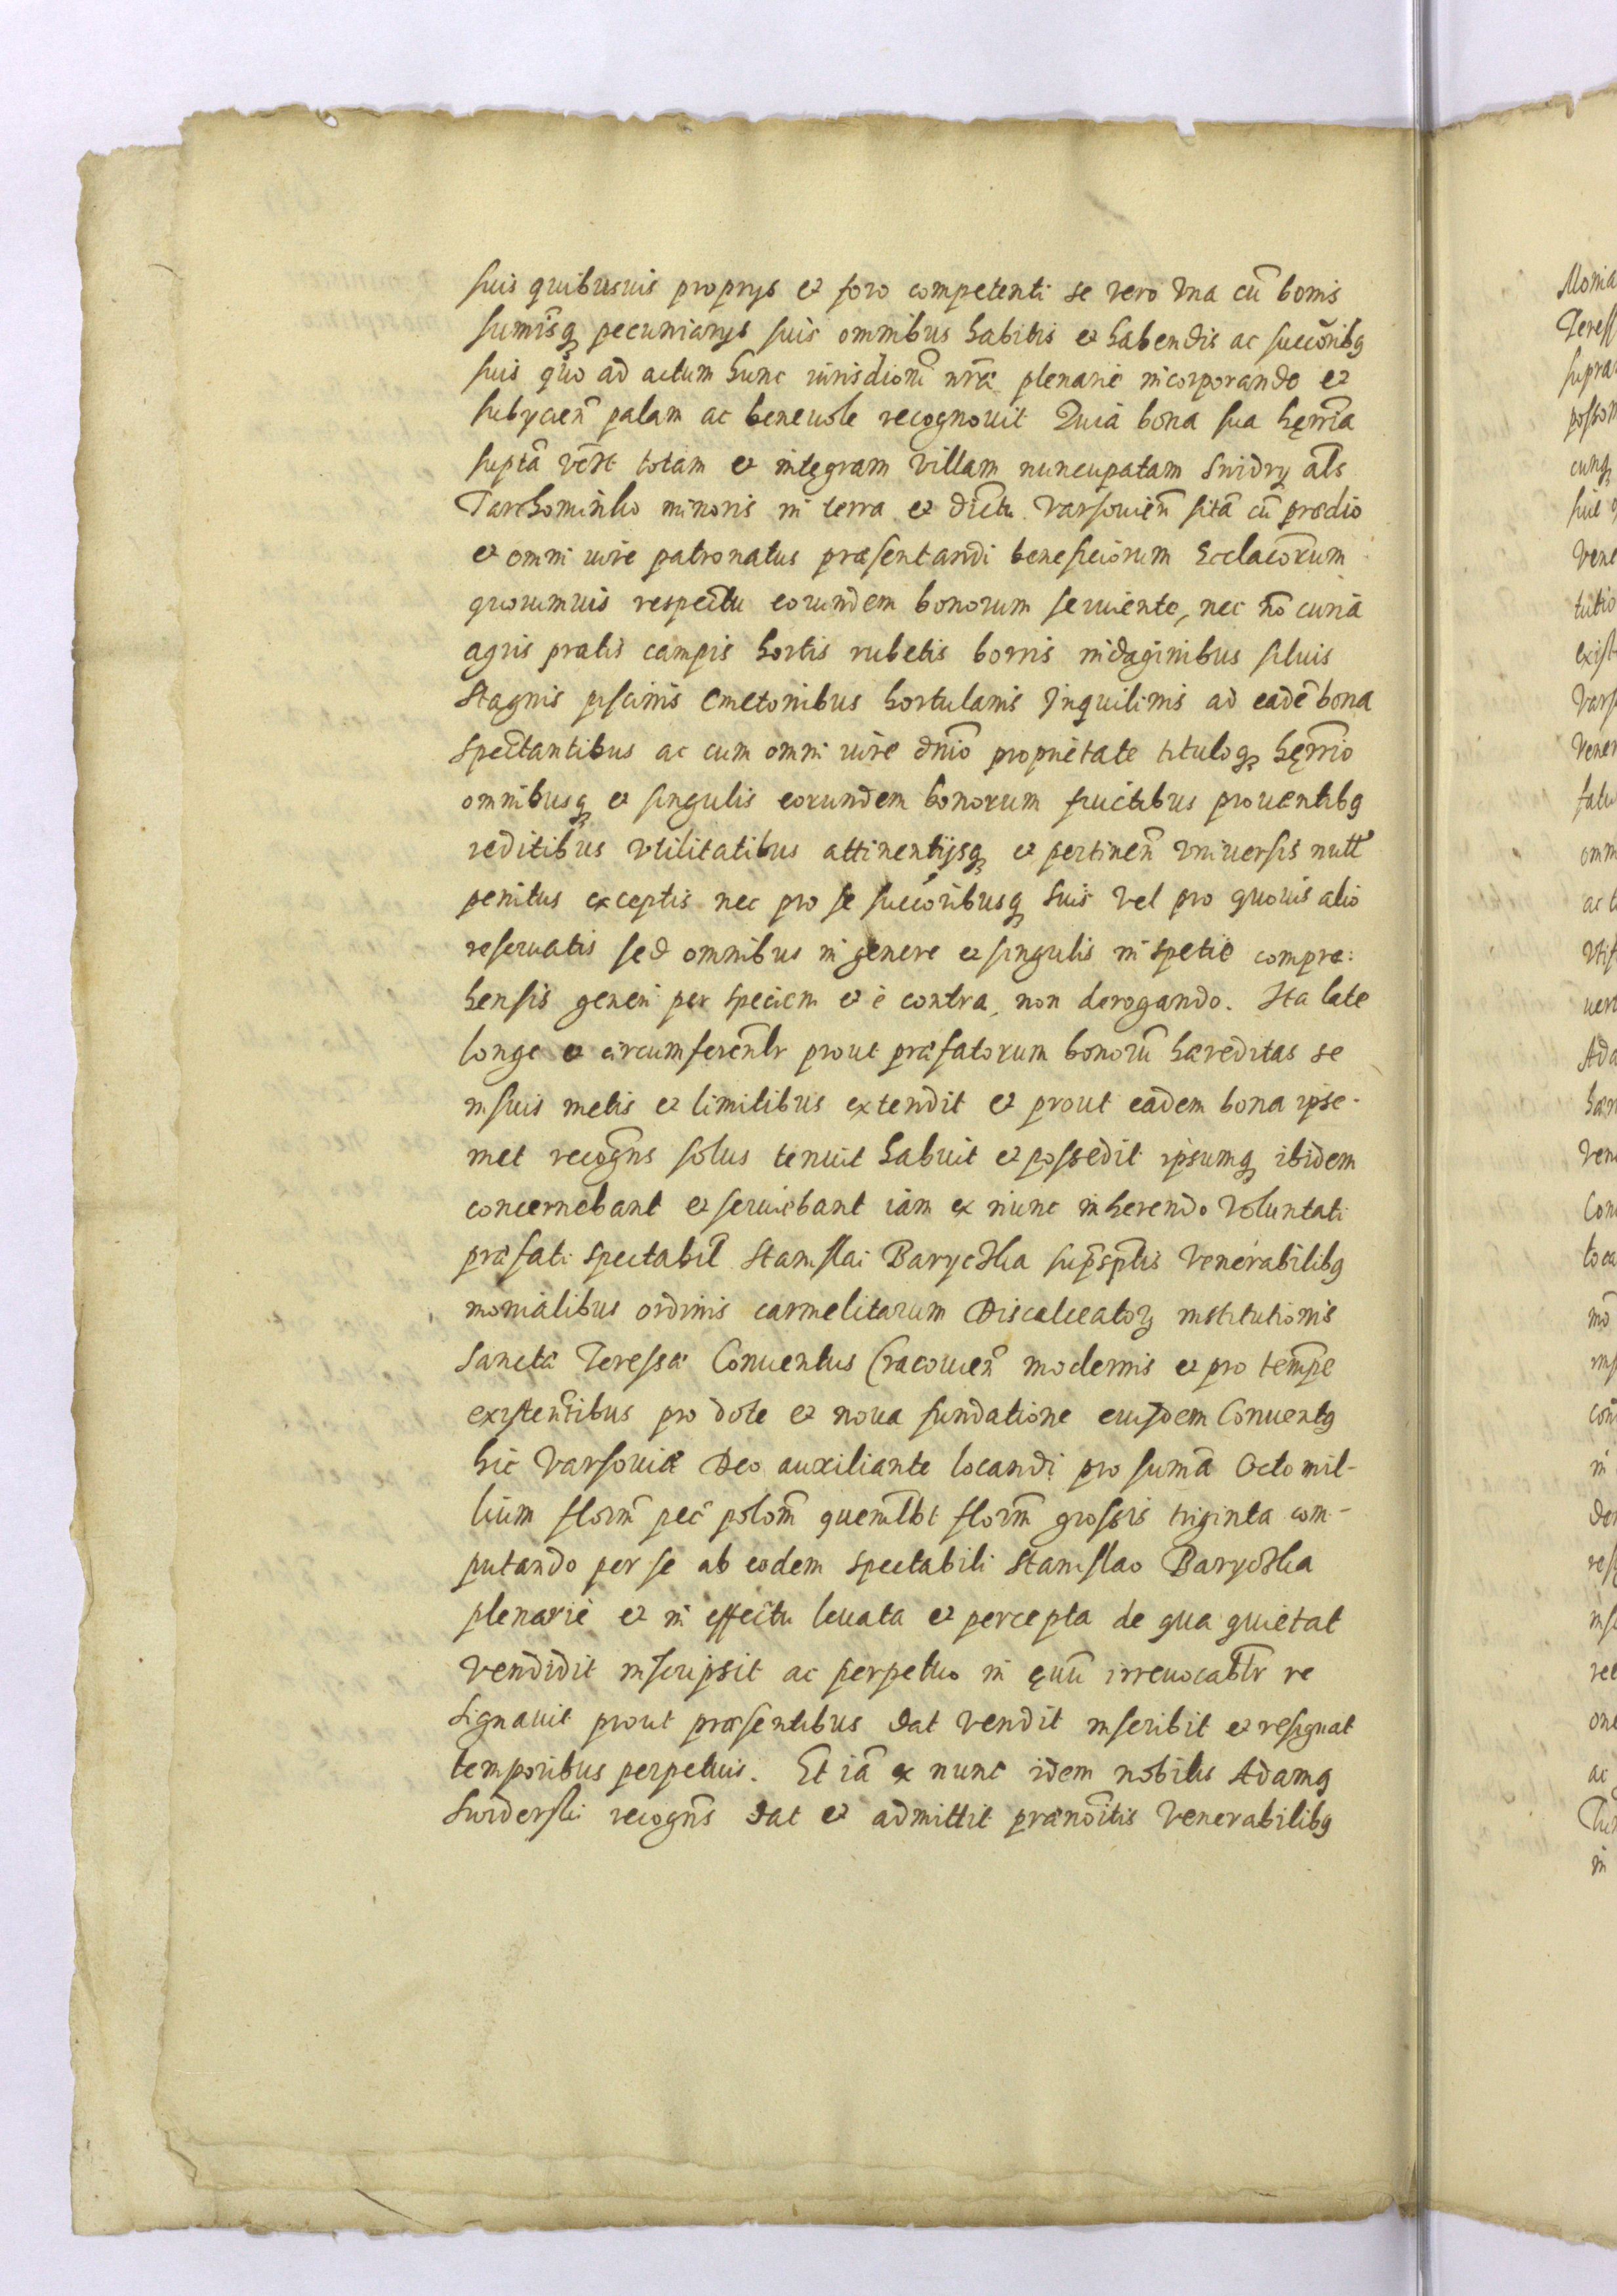 suis quibusuis proprys et foro competenti se vero Vna cū bonis
sumisq pecuniarys suis omnibus habitis et habendis ac succoribq
suis quo ad actum hunc iurisdioni nrae plenarie incorporando et
subycien̄ palam ac beneuole recognouit Quia bona sua hęrria
suptā vc̄lt totam et integram Villam nuncupatam Swidry als
Tarchominko minoris in terra et dictu Varsouien̄ sitā cū praedio
et omni iure patronatus praesentandi beneficiorum Ecclacorum
quorumuis respectu eorundem bonorum seruiente, nec nō curia
agris pratis campis hortis rubetis borris indaginibus siluis
stagnis piscinis Cmetonibus hortulanis Inquilinis ad eadē bona
spectantibus ac cum omni iure dnio proprietate tituloq hęrrio
omnibusq et singulis eorundem bonorum fructibus prouentibq
reditibus vtilitatibus attinentijsq et pertinen̄ vniuersis null
penitus exceptis nec pro se succoribusq suis vel pro quouis alio
reseruatis sed omnibus in genere et singulis in spetie compre:
hensis generi per speciem et è contra, non derogando. Ita late
longe et circumferentr prout praefatorum bonorū haereditas se
in suis metis et limitibus extendit et prout eadem bona ipse-
met recogns solus tenuit habuit et possedit ipsumq ibidem
concernebant et seruiebant iam ex nunc inherendo Voluntati
praefati spectabil Stanislai Baryczka supsptis Venerabilibq
monialibus ordinis carmelitarum Discalceatorʒ institutionis
Sanctae Teressae Conuentus Cracouien̄ modernis et pro tempe
existentibus pro dote et noua fundatione eiusdem Conuentq
hic Varsouiae Deo auxiliante locandi pro sumā Octo mil-
lium florm̄ pec̄ polom̄ quemlbt florm̄ grossis triginta com-
putando per se ab eodem spectabili Stanislao Baryczka
plenarie et in effectu leuata et percepta de qua quietat
vendidit inscripsit ac perpetuo in ęuū irreuocabtr re
signauit prout praesentibus dat vendit inscribit et resignat
temporibus perpetuis. Et iā ex nunc idem nobilis Adamq
Swiderski recogns dat et admittit praenoītis Venerabilibq